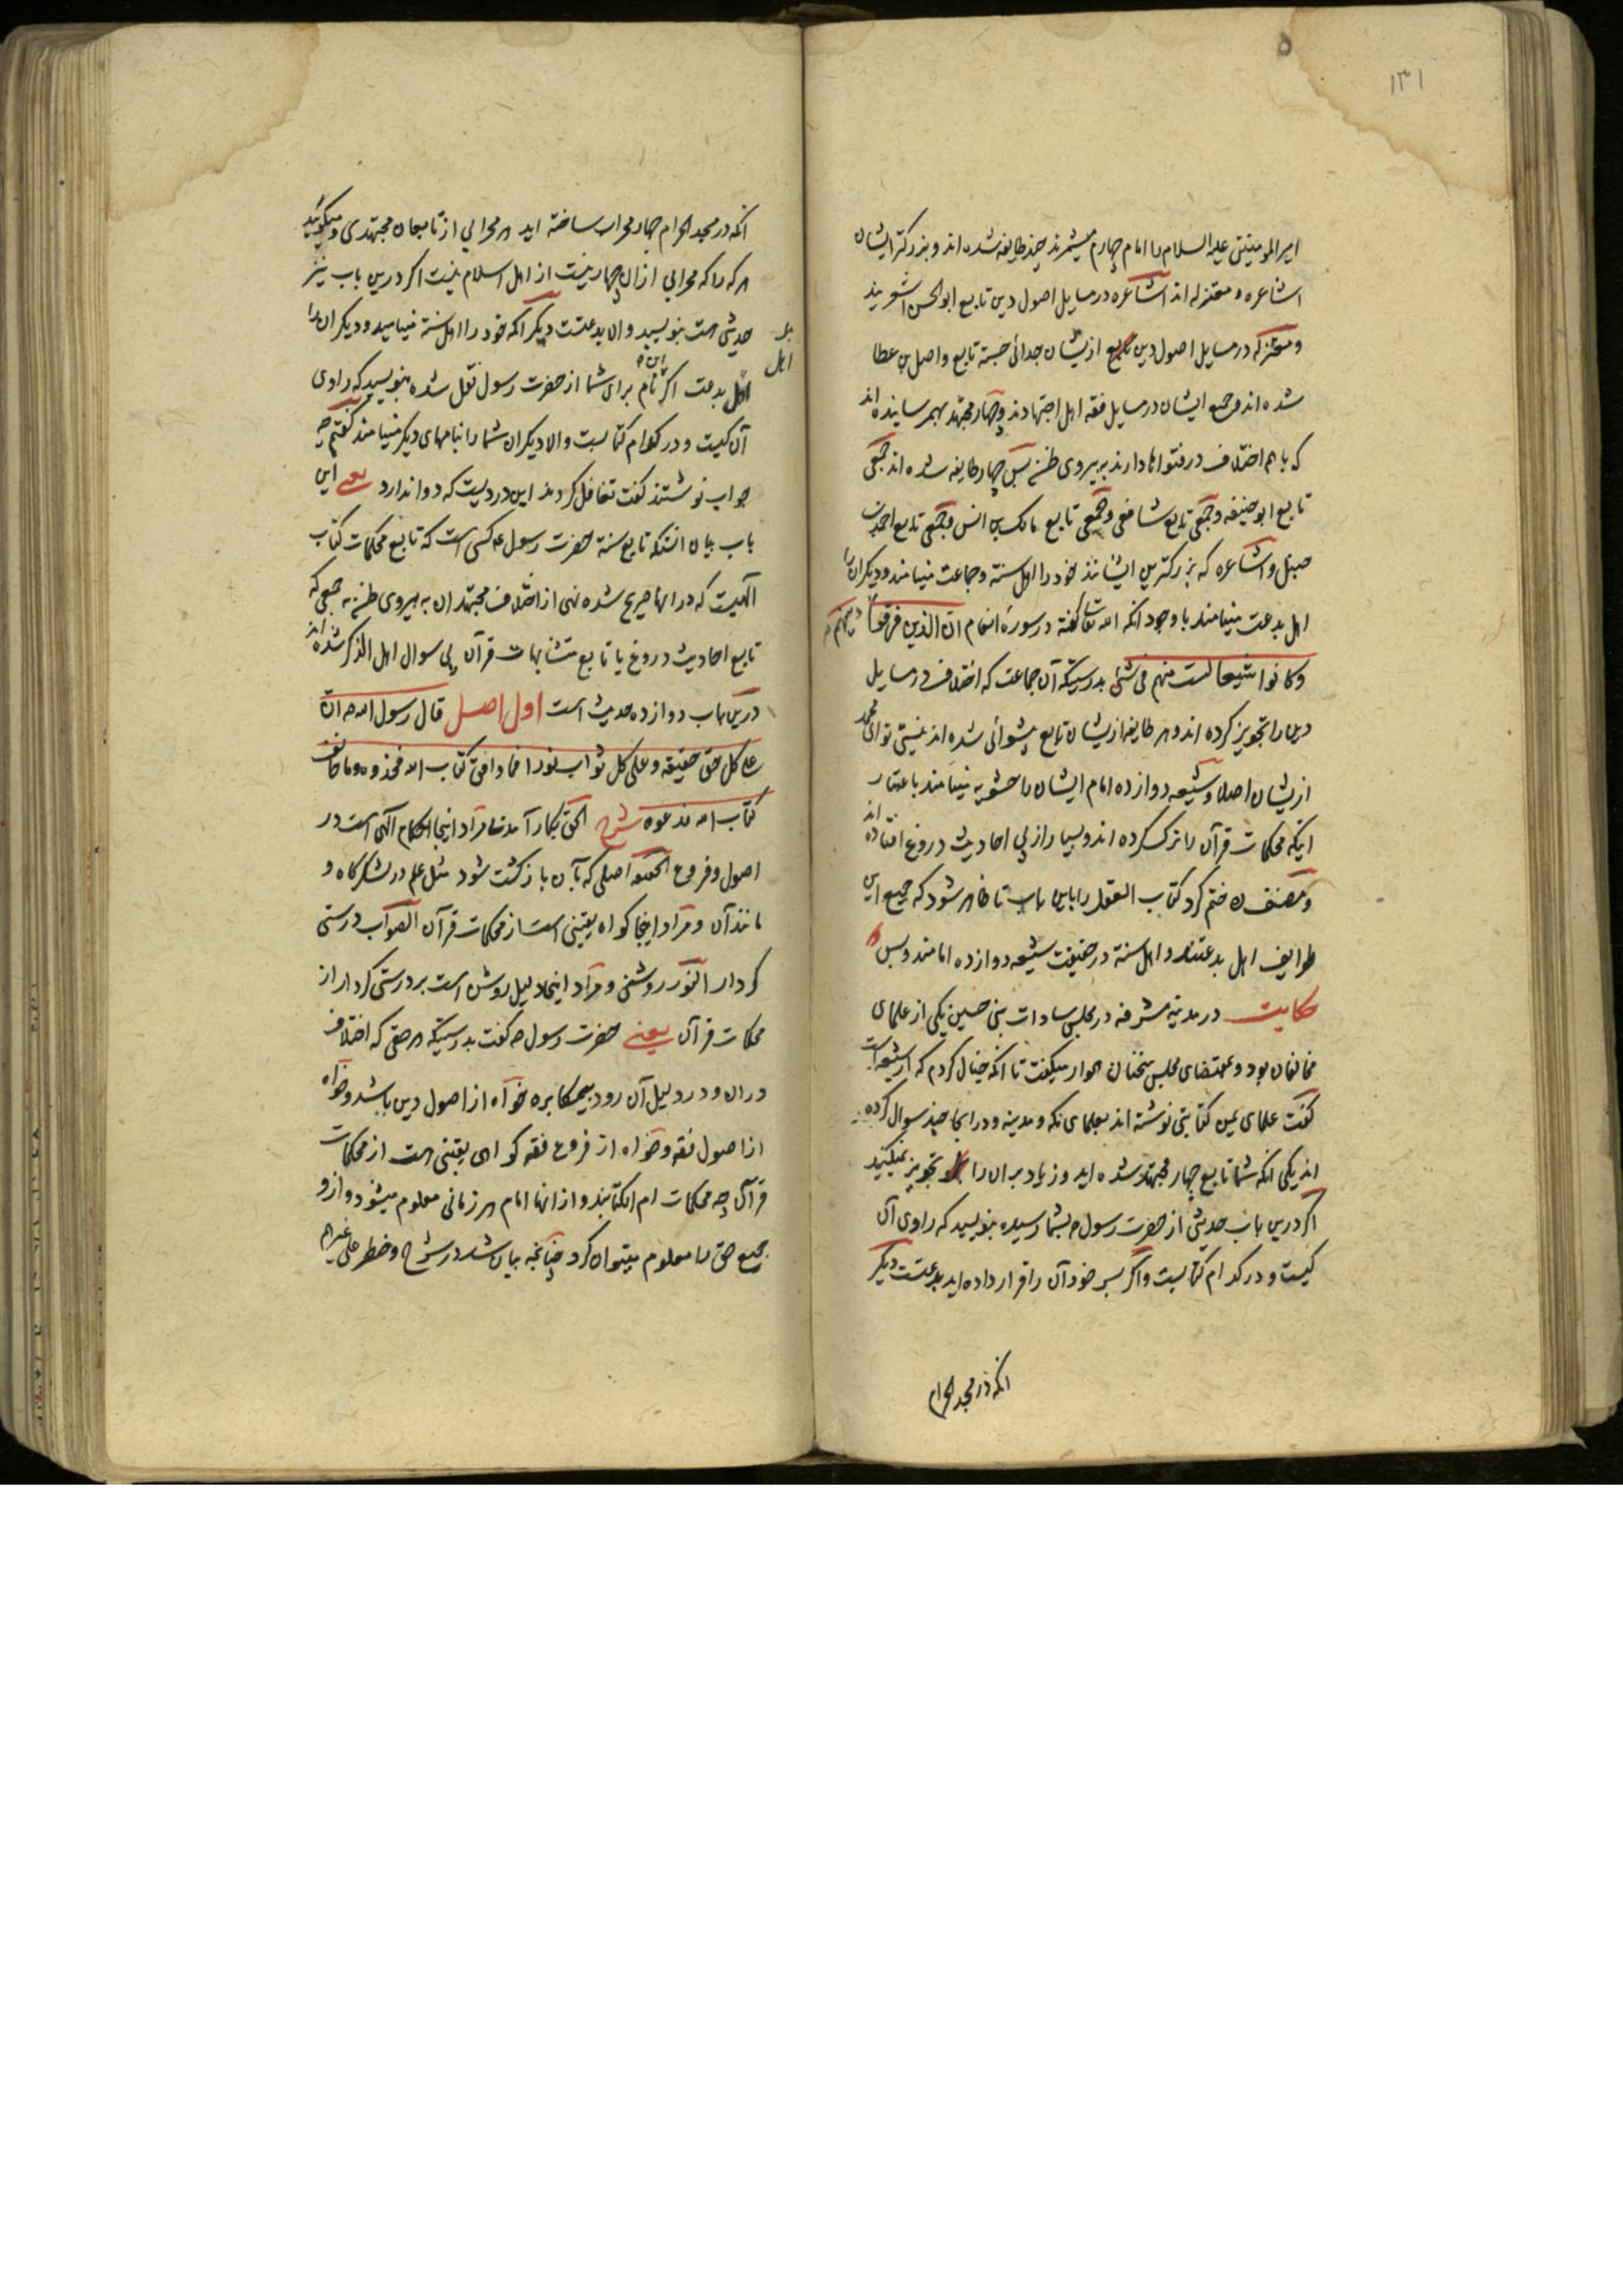 ۱۳۱
امیر المومنین علیه السلام را امام چهارم میشمرند چند طایفه شده اند و بزرکتر ایشان
اشاعره و معتزله اند اشاعره در مسایل اصول دین تابع ابو الحسن اشعریند
و معتزله در مسایل اصول دین از یشان جدائی جسته تابع واصل بن عطا
شده اند و جمیع ایشان در مسایل فقه اهل اجتهادند و چهار مجتهد بهمرسانیده اند
که با هم اختلاف در فتواها دارند به پیروی ظن پس چهار طایفه شده اند جمعی
تابع ابو حنیفه و جمعی تابع شافعی و جمعی تابع مالک بن انس و جمعی تابع احمد بن
حنبل و اشاعره که بزرکترین ایشانند خود را اهل سنة و جماعت مینامند و دیکران را
اهل بدعت مینامند با وجود انکه الله تعالی کفته در سورهٔ انعام ان الذین فرقوا دینهم
وکانوا شیعا لست منهم فی شئ بدرستیکه آن جماعت که اختلاف در مسایل
دین را تجویز کرده اند و هر طایفه از یشان تابع پیشوائی شده اند نیستی تو ای محمد
از یشان اصلا و شیعهٔ دوازده امام ایشان را حشویه مینامند باعتبار
اینکه محکمات قرآن را ترک کرده اند و بسیار از پی احادیث دروغ افتاده اند
و مصنف ره ختم کرد کتاب العقل را باین باب تا ظاهر شود که جمیع این
طوایف اهل بدعتند و اهل سنة در حقیقت شیعهٔ دوازده امامند و بس
حکایت در مدینهٔ مشرفه در مجلس سادات بنی حسین یکی از علمای
مخالفان بود و بمقتضای مجلس سخنان هموار میکفت تا انکه خیال کردم که از شیعه است
کفت علمای یمن کتابتی نوشته اند بعلمای مکه و مدینه و در انجا چند سوال کرده
اند یکی انکه شما تابع چهار مجتهد شده اید و زیاد بران را تجویز نمیکنید
اکر درین باب حدیثی از حضرت رسول ص بشما رسیده بنویسید که راوی آن
کیست و در کدام کتابست و اکر بسر خود آن را قرار داده اید بدعتست دیکر
انکه در مسجد الحرام
انکه در مسجد الحرام چهار محراب ساخته اید هر محرابی از تابعان مجتهدی و میکوئید
هر که را که محرابی ازان چهار نیست از اهل اسلام نیست اکر درین باب نیز
حدیثی هست بنویسید والا بدعتست دیکر آنکه خود را اهل سنة مینامید و دیکران را
اهل
اهل بدعت اکر این نام برای شما از حضرت رسول نقل شده بنویسید که راوی
آن کیست و در کدام کتابست والا دیکران شما را بنامهای دیکر مینامند کفتم چه
جواب نوشتند کفت تغافل کردند این دردیست که دوا ندارد یعنی این
باب بیان انستکه تابع سنة حضرت رسول ص کسی است که تابع محکمات کتاب
الهیست که در انها صریح شده نهی از اختلاف مجتهدان به پیروی ظن نه جمعی که
تابع احادیث دروغ یا تابع متشابهات قرآن بی سوال اهل الذکر شده اند
درین باب دوازده حدیث است اول اصل قال رسول الله ص ان
علی کل حق حقیقة وعلی کل صواب نورا فما وافق کتاب الله فخذوه وما خالف
کتاب الله فدعوه شرح الحق بکار آمدنی مراد اینجا احکام الهی است در
اصول و فروع الحقیقة اصلی که بآن بازکشت شود مثل علم در لشکرکاه و
مانند آن و مراد اینجا کواه یقینی است از محکمات قرآن الصواب درستی
کردار النور روشنی و مراد اینجا دلیل روشن است بر درستی کردار از
محکمات قرآن یعنی حضرت رسول ص کفت بدرستیکه هر حقی که اختلاف
دران و در دلیل آن رود بیمکابره خواه از اصول دین باشد و خواه
از اصول فقه و خواه از فروع فقه کواهی یقینی هست از محکمات
قرآن چه محکمات ام الکتابند و از انها امام هر زمانی معلوم میشود و ازو
جمیع حق را معلوم میتوان کرد چنانچه بیان شد در شرح وخطر علی غیرهم